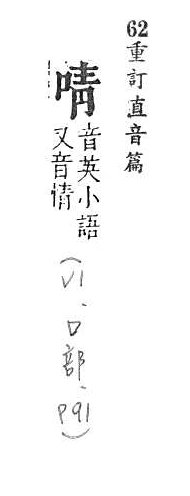 62重訂直音篇
啨
音英小語
又音情
(V1、口部、P91)